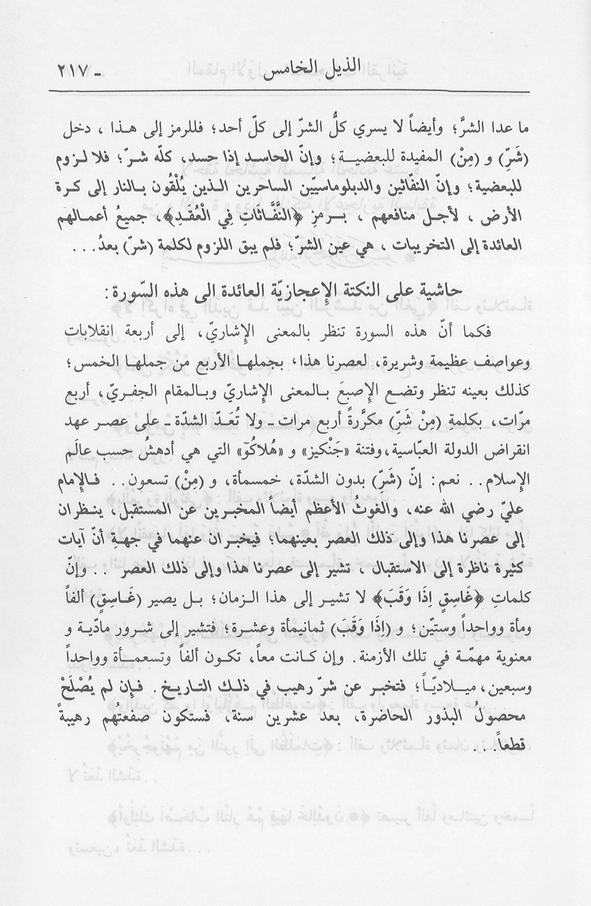 الذيل الخامس ـ ٢١٧
ما عدا الشرَّ؛ وأيضاً لا يسري كلُّ الشرّ إلى كلّ أحد؛ فللرمز إلى هـذا ، دخل
(شَرِّ) و (مِنْ) المفيدة للبعضيـة؛ وإنّ الحاسد إذا حسد، كلّه شرّ؛ فلا لـزوم
للبعضية؛ وإنّ النفّاثين والدبلوماسيّين الساحرين الـذين يُلْقُون بـالنار إلى كـرة
الأرض ، لأجـل منافعهم ، بـرمزِ ﴿النَّفَّاثَاتِ فِي الْعُقَدِ﴾، جميعُ أعمـالهم
العائدة إلى التخريبات ، هي عين الشرّ؛ فلم يبق اللزوم لكلمة (شرّ) بعدُ...
حاشية على النكتة الإعجازيّة العائدة الى هذه السّورة:
فكما أنّ هذه السورة تنظر بالمعنى الإشاريّ، إلى أربعة انقلابات
وعواصف عظيمة وشريرة، لعصرنا هذا، بجملها الأربع من جملهـا الخمس؛
كذلك بعينه تنظر وتضع الإصبعَ بـالمعنى الإشاريّ وبـالمقام الجفـريّ، أربع
مرّات، بكلمةِ (مِنْ شَرِّ) مكرَّرةً أربع مرات ـ ولا تُعَـدّ الشدّة ـ على عصـر عهد
انقراض الدولة العبّاسية،وفتنة «جَنْكيز» و «هُلاكُو» التي هي أدهشُ حسب عالَم
الإسلام.. نعم: إنّ (شَرّ) بدون الشدّة، خمسمأة، و (مِنْ) تسعون.. فـالإمام
عليّ رضي الله عنه، والغوثُ الأعظم أيضاً المخبرين عن المستقبل، ينـظران
إلى عصرنا هذا وإلى ذلك العصر بعينهما؛ فيخبـران عنهما في جهةِ أنّ آيات
كثيرة ناظرة إلى الاستقبال ، تشير إلى عصرنا هذا وإلى ذلك العصر .. وإنّ
كلماتِ ﴿غَاسِقٍ اِذَا وَقَبَ﴾ لا تشيـر إلى هذا الـزمان؛ بـل يصير (غَـاسِقٍ) ألفاً
ومأة وواحداً وستّين؛ و (اِذَا وَقَبَ) ثمانيمأة وعشـرة؛ فتشير إلى شـرور مادّيـة و
معنوية مهمّـة في تلك الأزمنة. وإن كـانت معاً، تكـون ألفاً وتسعمـأة وواحداً
وسبعين،ميـلاديّـاً؛ فتخبـر عن شرّ رهيب في ذلـك التـاريـخ. فـإن لم يُصْلَحْ
محصولُ البذور الحاضرة، بعد عشرين سنة، فستكون صفعتُهم رهيبةً
قطعاً...